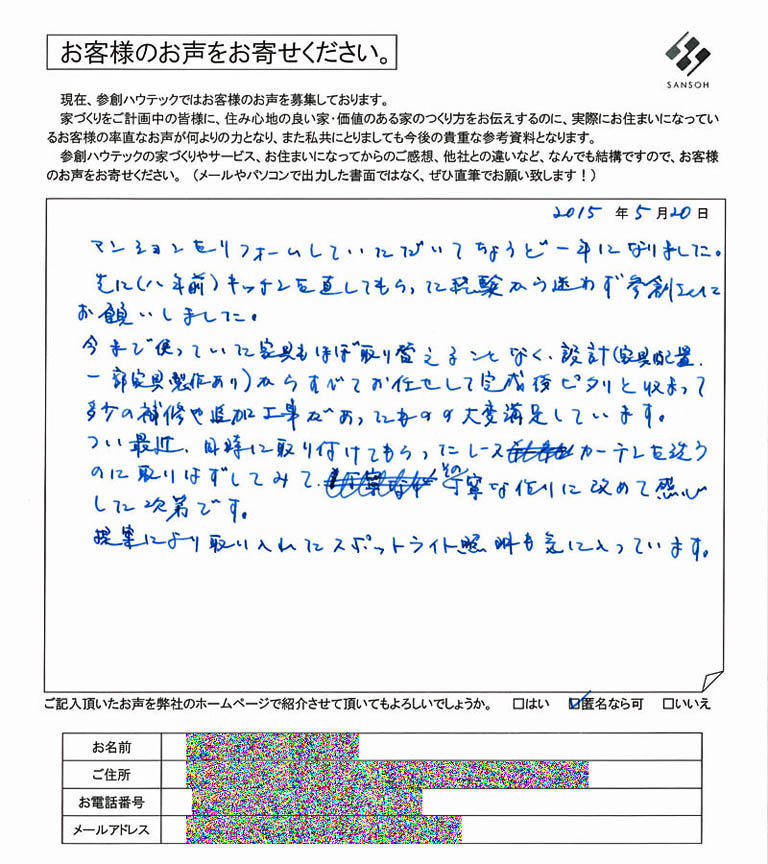 お客様のお声をお寄せください。
SANSOH
現在、参創ハウテックではお客様のお声を募集しております。
家づくりをご計画中の皆様に、住み心地の良い家・価値のある家のつくり方をお伝えするのに、実際にお住まいになってい
るお客様の率直なお声が何よりの力となり、また私共にとりましても今後の貴重な参考資料となります。
参創ハウテックの家づくりやサービス、お住まいになってからのご感想、他社との違いなど、なんでも結構ですので、お客様
のお声をお寄せください。（メールやパソコンで出力した書面ではなく、ぜひ直筆でお願い致します！）
2015 年 5 月 20 日
マンションをリフォームしていただいてちょうど一年になりました。
先に(八年前)キッチンを直してもらった経験から迷わず参創さんに
お願いしました。
今まで使っていた家具もほぼ取り替えることなく、設計(家具配置、
一部家具製作あり)からすべてお任せして完成後ピタリと収まって
多少の補修や追加工事があったものの大変満足しています。
つい最近、同時に取り付けてもらったレースカーテンを洗う
のに取りはずしてみて、その丁寧な作りに改めて感心
した次第です。
提案により取り入れたスポットライト照明も気に入っています。
ご記入頂いたお声を弊社のホームページで紹介させて頂いてもよろしいでしょうか。 □はい ☑匿名なら可 □いいえ
お名前
ご住所
お電話番号
メールアドレス